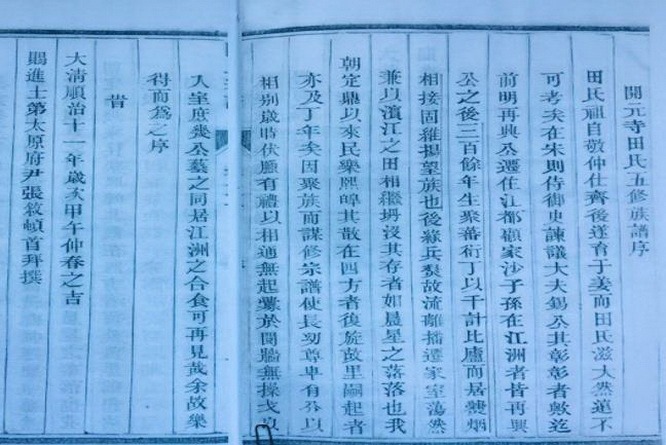 開元寺田氏五修族譜序
田氏祖自敬仲仕齊後遂育于姜而田氏滋大然遠不
可考矣在宋則侍御史諫議大夫錫公其彰彰者歟迄
前明再興公遷住江都顧家沙子孫在江洲者皆再興
公之後三百餘年生聚蕃衍丁以千計比廬而居爨烟
相接固維揚望族也後緣兵燹故流離播遷家室蕩然
兼以濱江之田相繼坍沒其存者如晨星之落落也我
朝定鼎以來民樂熙皥其散在四方者復旋故里嗣起者
亦及丁年矣因聚族而謀修宗譜使長幼尊卑有分以
相別歲時伏臘有禮以相通無起釁於鬩牆無操戈
入室庶幾公藝之同居江洲之合食可再見哉余故樂
得而爲之序
旹
大清順治十一年歲次甲午仲春之吉
賜進士第太原府尹張敘頓首拜撰